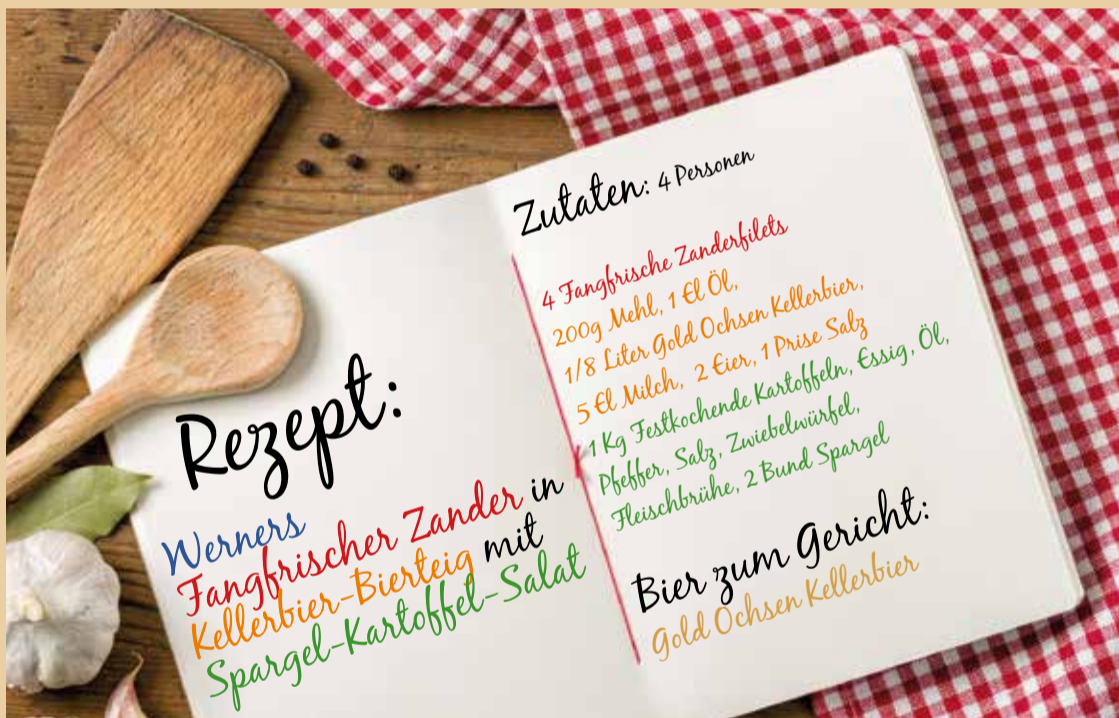 Rezept:
Werners
Fangfrischer Zander in
Kellerbier-Bierteig mit
Spargel-Kartoffel-Salat
Zutaten: 4 Personen
4 Fangfrische Zanderfilets
200g Mehl, 1 El Öl,
1/8 Liter Gold Ochsen Kellerbier,
5 El Milch, 2 Eier, 1 Prise Salz
1 Kg Festkochende Kartoffeln, Essig, Öl,
Pfeffer, Salz, Zwiebelwürfel,
Fleischbrühe, 2 Bund Spargel
Bier zum Gericht:
Gold Ochsen Kellerbier